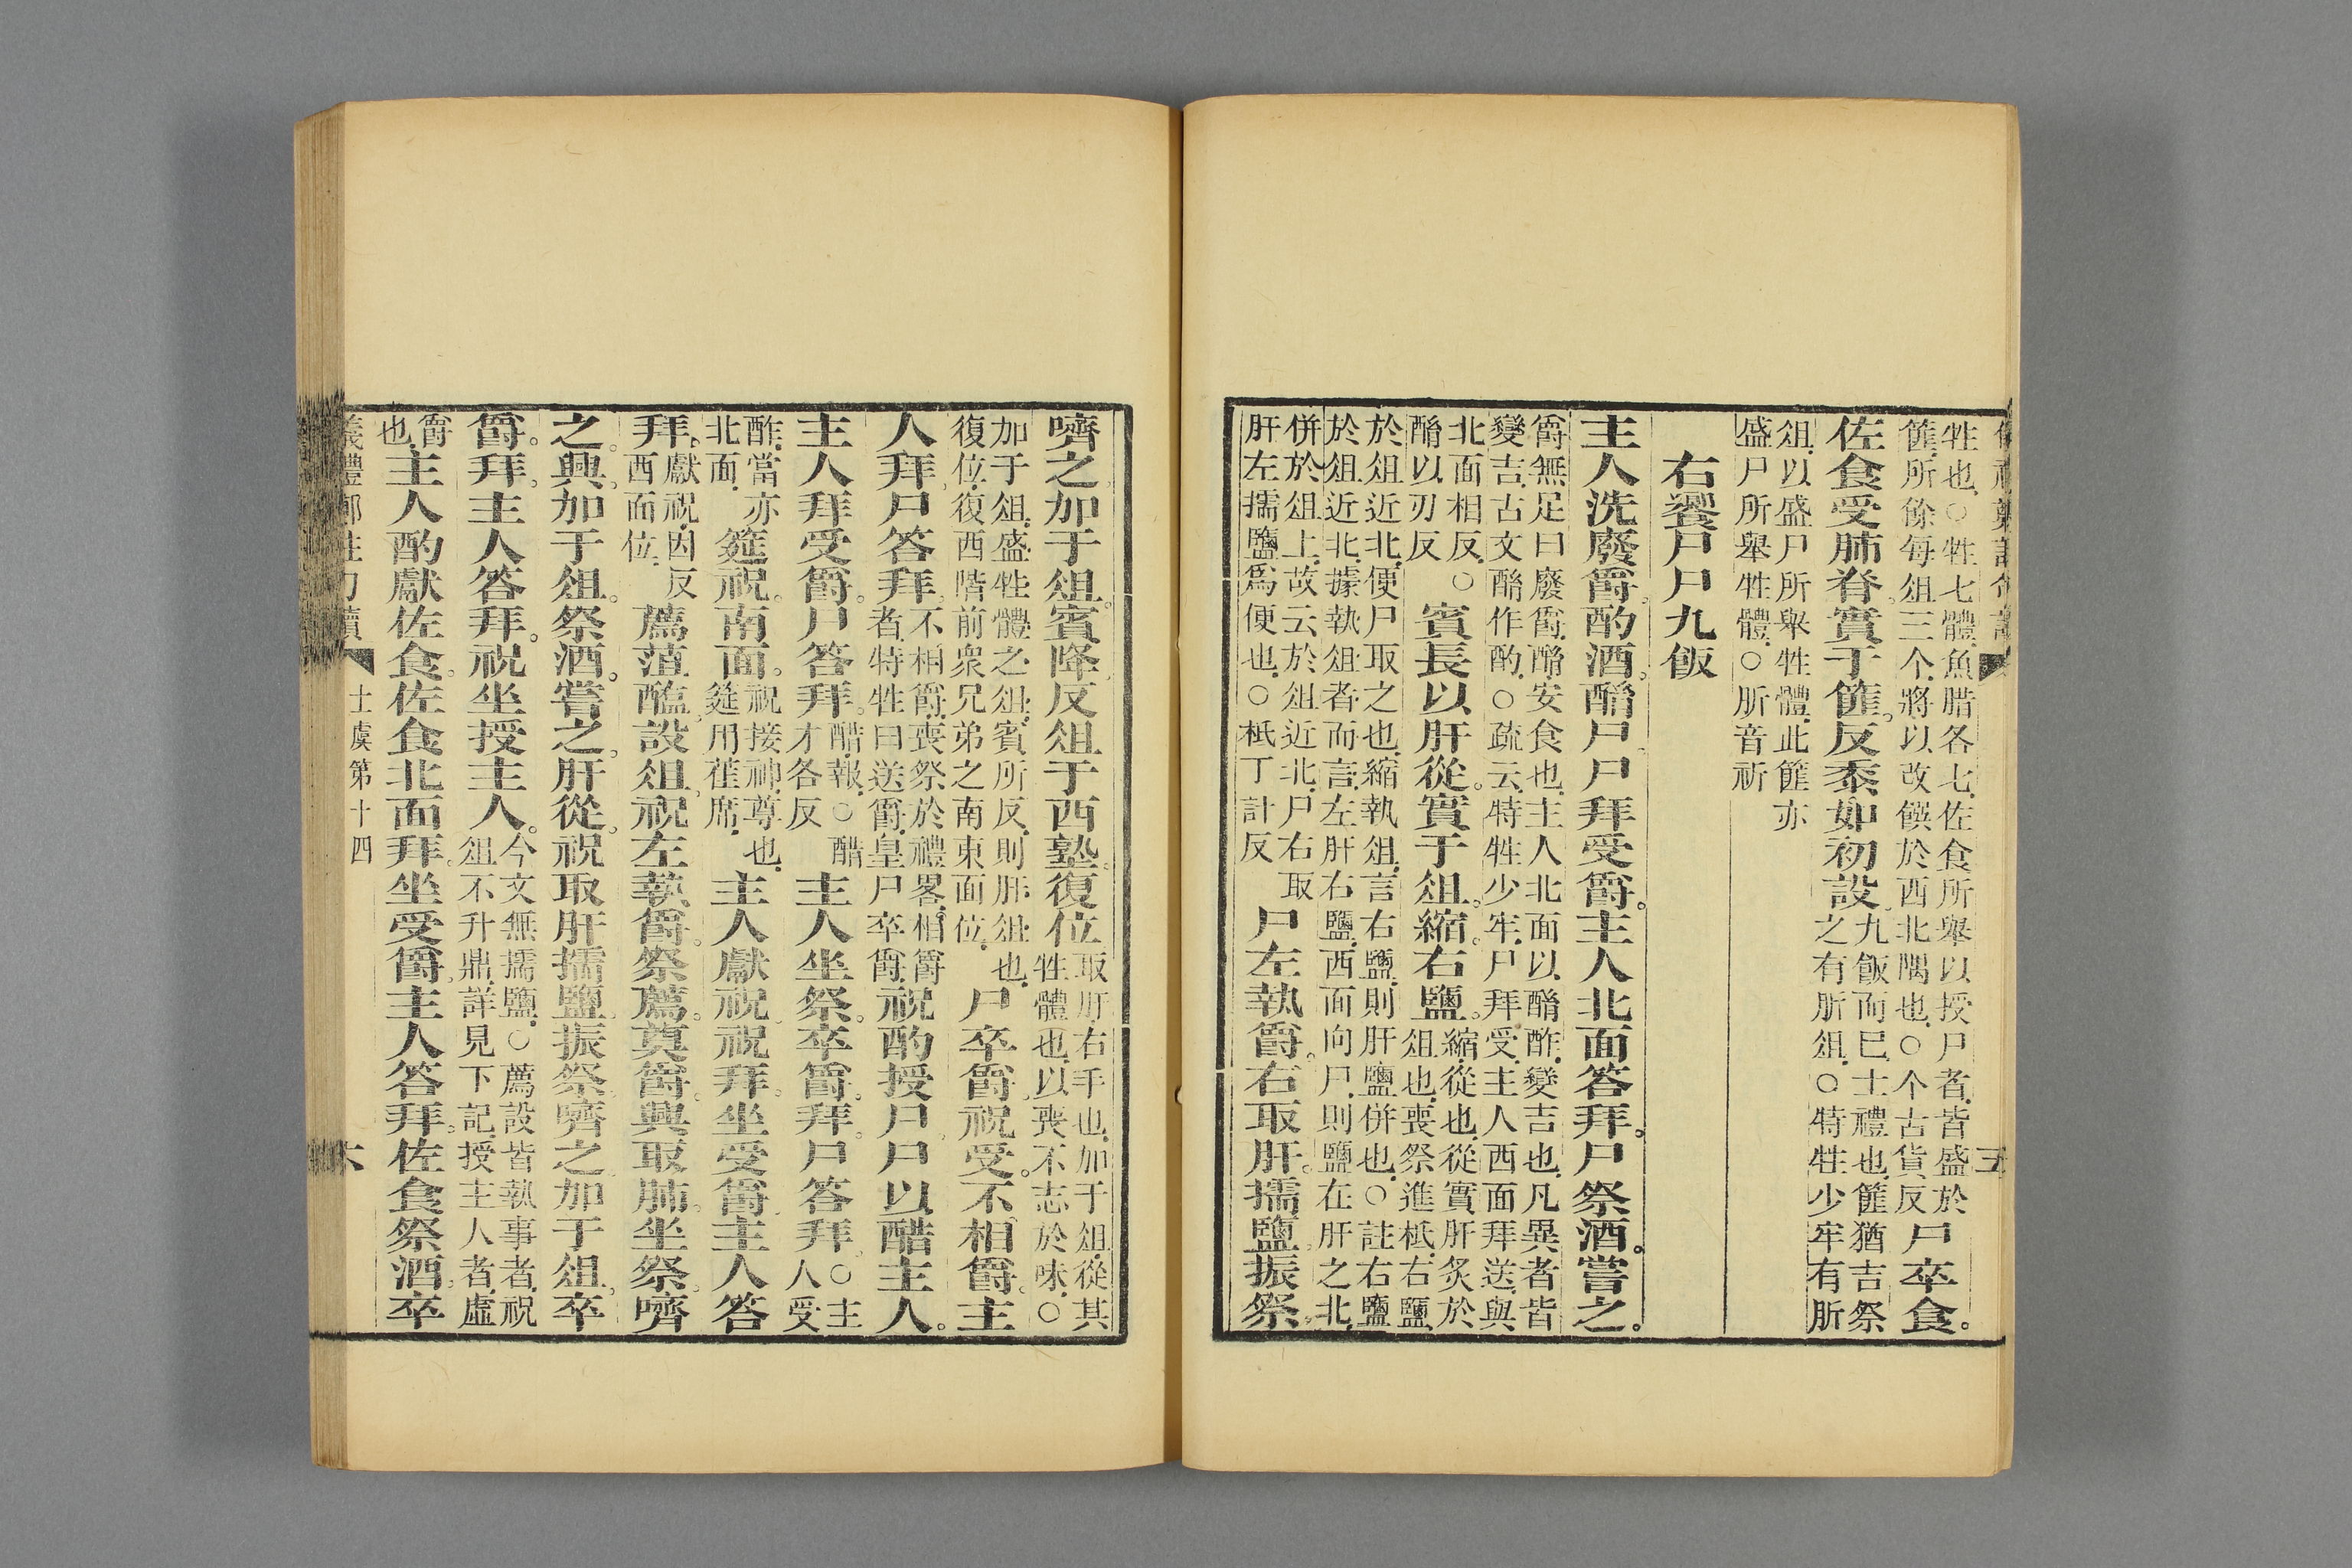 牲也○牲七體魚腊各七佐食所舉以授尸者皆盛於
篚所餘每俎三个將以改饌於西北隅也○个古貨反
尸卒食。
佐食受肺脊實于篚。反黍如初設。
九飯而已士禮也篚猶吉祭
之有肵俎○特牲少牢有肵
俎以盛尸所舉牲體此篚亦
盛尸所舉牲體○肵音祈
右饗尸尸九飯
主人洗廢爵。酌酒。酳尸。尸拜受爵。主人北面答拜。尸祭酒。嘗之。
爵無足曰廢爵酳安食也主人北面以酳酢變吉也凡異者皆
變吉古文酳作酌○疏云特牲少牢尸拜受主人西面拜送與
北面相反○
酳以刃反
賓長以肝從。實于俎。縮。右鹽。
縮從也從實肝炙於
俎也喪祭進柢右鹽
於俎近北便尸取之也縮執俎言右鹽則肝鹽併也○註右鹽
於俎近北據執俎者而言左肝右鹽西面向尸則鹽在肝之北
併於俎上故云於俎近北尸右取
肝左擩鹽爲便也○柢丁計反
尸左執爵。右取肝。擩鹽。振祭。
嚌之。加于俎。賓降。反俎于西塾。復位
取肝右手也加于俎從其
牲體也以喪不志於味○
加于俎盛牲體之俎賓所反則肝俎也
復位復西階前衆兄弟之南東面位
尸卒爵。祝受。不相爵。主
人拜。尸答拜。
不相爵喪祭於禮畧相爵
者特牲曰送爵皇尸卒爵
祝酌授尸。尸以醋主人。
主人拜受爵。尸答拜。
醋報○醋
才各反
主人坐祭。卒爵。拜。尸答拜。
○主
人受
酢當亦
北面
筵祝。南面。
祝接神尊也
筵用萑席
主人獻祝。祝拜。坐受爵。主人答
拜。
獻祝因反
西面位
薦菹醢。設俎。祝左執爵。祭薦。奠爵。興。取肺。坐祭。嚌
之。興。加于俎。祭酒。嘗之。肝從。祝取肝擩鹽。振祭。嚌之。加于俎。卒
爵。拜。主人答拜。祝坐授主人。
今文無擩鹽○薦設皆執事者祝
俎不升鼎詳見下記授主人者虛
爵
也
主人酌獻佐食。佐食北面拜。坐受爵。主人答拜。佐食祭酒。卒
士虞第十四
六